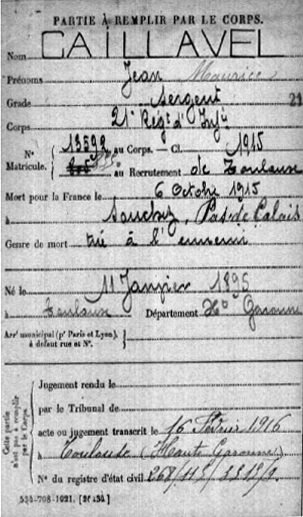 PARTIE À REMPLIR PAR LE CORPS.
Nom CAILLAVEL
Prénoms Jean Maurice
Grade Sergent
Corps 21e Régt d'Infie
N° 13592 au Corps. — Cl. 1915
Matricule. au Recrutement de Toulouse
Mort pour la France le 6 Octobre 1915
à Souchez, Pas-de-Calais
Genre de mort tué à l'ennemi
Né le 11 Janvier 1895
à Toulouse Département Hte Garonne
Arrt municipal (pr Paris et Lyon),
à défaut rue et N°.
Cette partie
n'est pas à remplir
par le Corps.
Jugement rendu le
par le Tribunal de
acte ou jugement transcrit le 16 Février 1916
à Toulouse (Haute Garonne)
N° du registre d'état civil
534-708-1921. [26434]